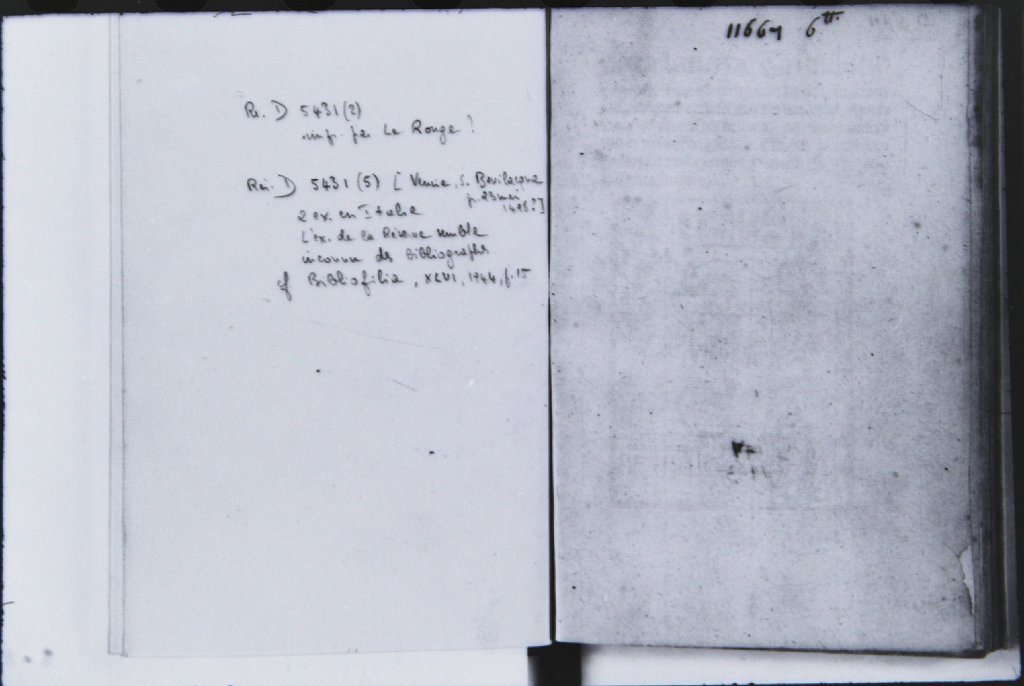 Rés. D 5431 (2)
imp. par Le Rouge?
Rés. D 5431 (5) [Venise, S. Bevilacqua
p. 23 mai
1498?]
2 ex. en Italie
L'ex. de la Réserve semble
inconnu des bibliographes
cf Bibliofilia, XLVI, 1944, p. 15
11667 6tt